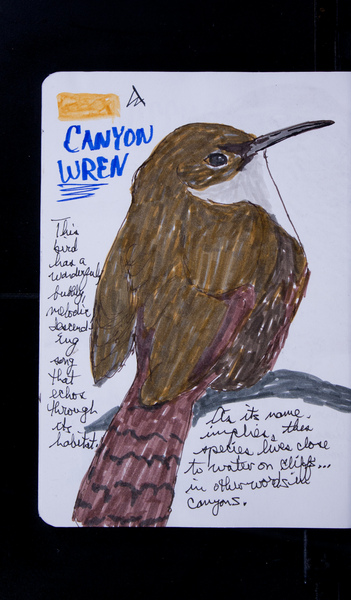 CANYON
WREN
This
bird
has a
wonderfully
bubbly,
melodic
descend-
ing
song
that
echos
through
its
habitat.
As its name
implies, this
species lives close
to water on cliffs...
in other words in
canyons.